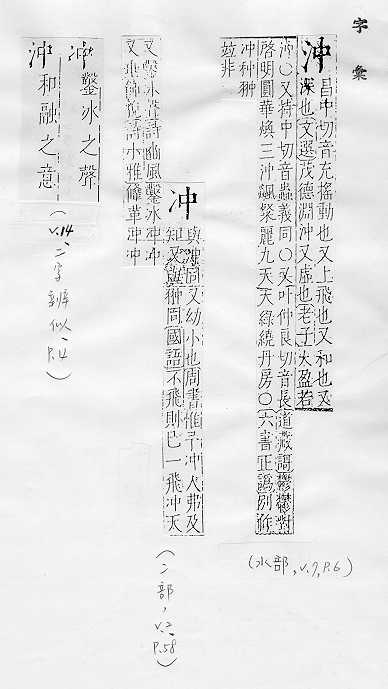 字彙
沖 昌中切音充搖動也又上飛也又和也又
深也文選茂德淵沖又虛也老子大盈若
沖〇又持中切音蟲義同〇又吁仲良切音長道藏謌鬱鬱對
啓明圓華煥三沖颯翠麗九天天綠繞丹房〇六書正譌別作
冲种翀
竝非
(水部, v.7, P.6)
冲 與沖同又幼小也周書惟予冲人弗及
知又與翀同國語不飛則已一飛冲天
又鑿冰聲詩豳風鑿冰冲冲
又垂飾貌詩小雅鞗革冲冲
(冫部, v.2, P.58)
冲鑿冰之聲
沖和融之意
(v.14, 二字辨似, P.4)